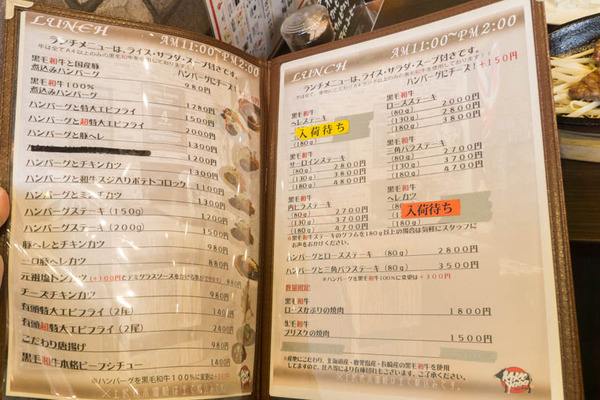 LUNCH AM11:00~PM2:00
ランチメニューは、ライス・サラダ・スープ付きです。
黒毛和牛と国産豚
煮込みハンバーグ 980円
ハンバーグにチーズ!
黒毛和牛100%
煮込みハンバーグ
ハンバーグと特大エビフライ 1280円
ハンバーグと超特大エビフライ 1500円
ハンバーグと豚ヘレ 2000円
1300円
ハンバーグとチキンカツ 1200円
ハンバーグと和牛スジ入りポテトコロッケ 1100円
ハンバーグとミンチカツ 1300円
ハンバーグステーキ(150g) 1200円
ハンバーグステーキ(200g) 1500円
豚ヘレとチキンカツ 980円
一口豚ヘレカツ 880円
元祖塩トンカツ
チーズチキンカツ 980円
有頭特大エビフライ(2尾) 1400円
有頭超特大エビフライ(2尾) 2400円
こだわり唐揚げ 980円
黒毛和牛本格ビーフシチュー 1400円
※ハンバーグを黒毛和牛100%に変更は+300円
LUNCH AM11:00~PM2:00
ランチメニューは、ライス・サラダ・スープ付きです。
ハンバーグにチーズ!+150円
黒毛和牛
ヘレステーキ
入荷待ち
(180g)
黒毛和牛
サーロインステーキ
(80g) 2800円
(130g) 3800円
(180g) 4800円
黒毛和牛
内ヒラステーキ
(80g) 2700円
(130g) 3700円
(180g) 4700円
黒毛和牛
ロースステーキ
(80g) 2000円
(130g) 2800円
(180g) 3800円
黒毛和牛
三角バラステーキ
(80g) 2700円
(130g) 3700円
(180g) 4700円
黒毛和牛
ヘレカツ
入荷待ち
(180g)
※黒毛和牛ステーキのグラムを180g以上の場合は気軽にスタッフに
お声をおかけください。
ハンバーグとロースステーキ (80g) 2800円
ハンバーグと三角バラステーキ (80g) 3500円
※ハンバーグを黒毛和牛100%に変更は+300円
数量限定
黒毛和牛
ロースかぶりの焼肉 1800円
黒毛和牛
ブリスケの焼肉 1500円